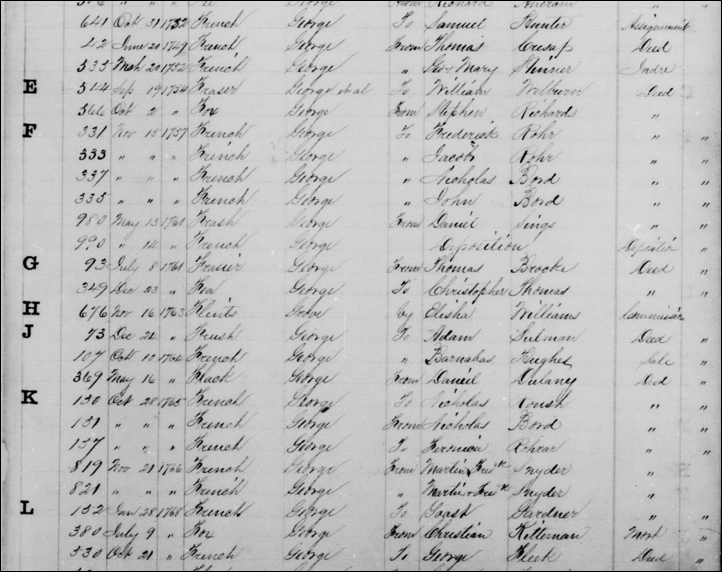 641 Oct 31 1752 French George To Samuel Hunter Assignment
42 June 20 1749 French George From Thomas Cresap Deed
535 Mch 20 1752 French George " Mary Skinner Indre
E 514 Sep 19 1754 Fraser George et al To William Wilburn Deed
566 Oct 2 " Fox George From Stephen Richards "
F 331 Nov 15 1757 French George To Frederick Rohr " "
333 " " " French George " Jacob Rohr " "
337 " " " French George " Nicholas Bord " "
335 " " " French George " John Bord " "
980 May 13 1760 George From Daniel " "
990 " 14 " French George Deposition Deposition "
G 93 July 8 1761 Frasier George From Thomas Brooke Deed "
349 Dec 23 " Fox George To Christopher Thomas " "
H 676 Nov 16 1763 Flints Grove by Elisha Williams Commission "
J 73 Dec 21 " George To Adam Deed "
107 Oct 10 1764 French George " Barnabas Hughes Sale "
369 May 16 " George From Daniel Dulany Ded "
K 130 Oct 28 1765 French George To Nicholas " "
131 " " " French George From Nicholas Bord " "
137 " " " French George To " "
819 Nov 21 1766 French George From Martin & Fredk Snyder "
821 " " " French George " Martin & Fredk Snyder "
L 132 Jan 28 1768 French George To Gardner " "
380 July 9 " Fox George From Christian Kitteman Mort "
530 Oct 21 " French George To George Fleck Deed "